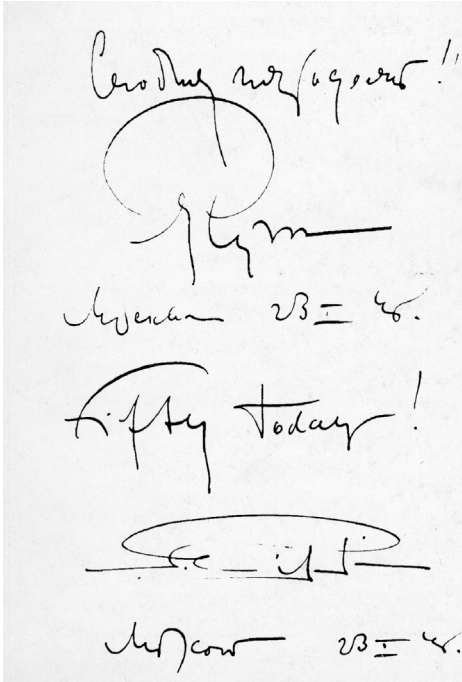 Сегодня пятьдесят!!
Москва 23 I 48.
Fifty today!
Moscow 23 I 48.